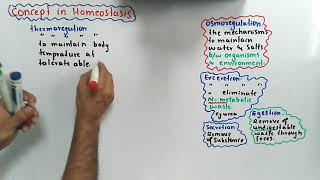 Concept in Homeostasis
thermoregulation
" " " "
to maintain body
tempature at
tolerate able
osmoregulation
the mechanisms
to maintain
water & salts
b/w organisms
& environment
Excretion
" " "
" eliminate
N- metabolic
waste
eg urea
Secretion
Remove of
Substance
Egestion
Remove of
undigestable
waste through
feces.